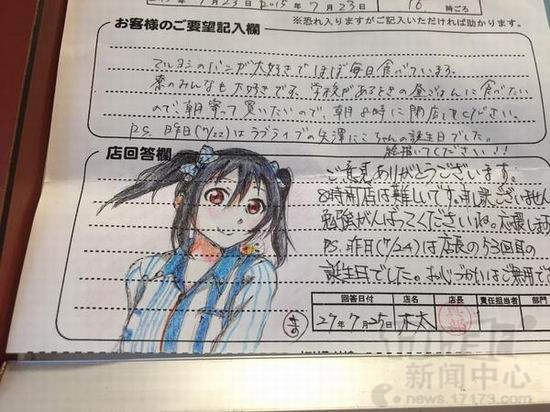 7月23日 2015年7月23日 16時ごろ
お客様のご要望記入欄
※恐れ入りますがご記入いただければ助かります。
マルヨシのパンが大好きでほぼ毎日食べています。
寮のみんなも大好きで、学校があるときの昼ごはんに食べたい
ので朝寄って買いたいので、朝8時に開店してください。
P.S. 昨日(7/22)はラブライブの矢澤にこちゃんの誕生日でした。
絵描いてください!!
店回答欄
ご意見ありがとうございます。
8時開店は難しいです。申し訳ございません
勉強がんばってくださいね。応援します
P.S. 昨日(7/24)は店長の53回目の
誕生日でした。おきづかいはご無用で
回答日付 店名 店長 責任担当者 部門
27年7月25日 木太
新闻中心
news.17173.com